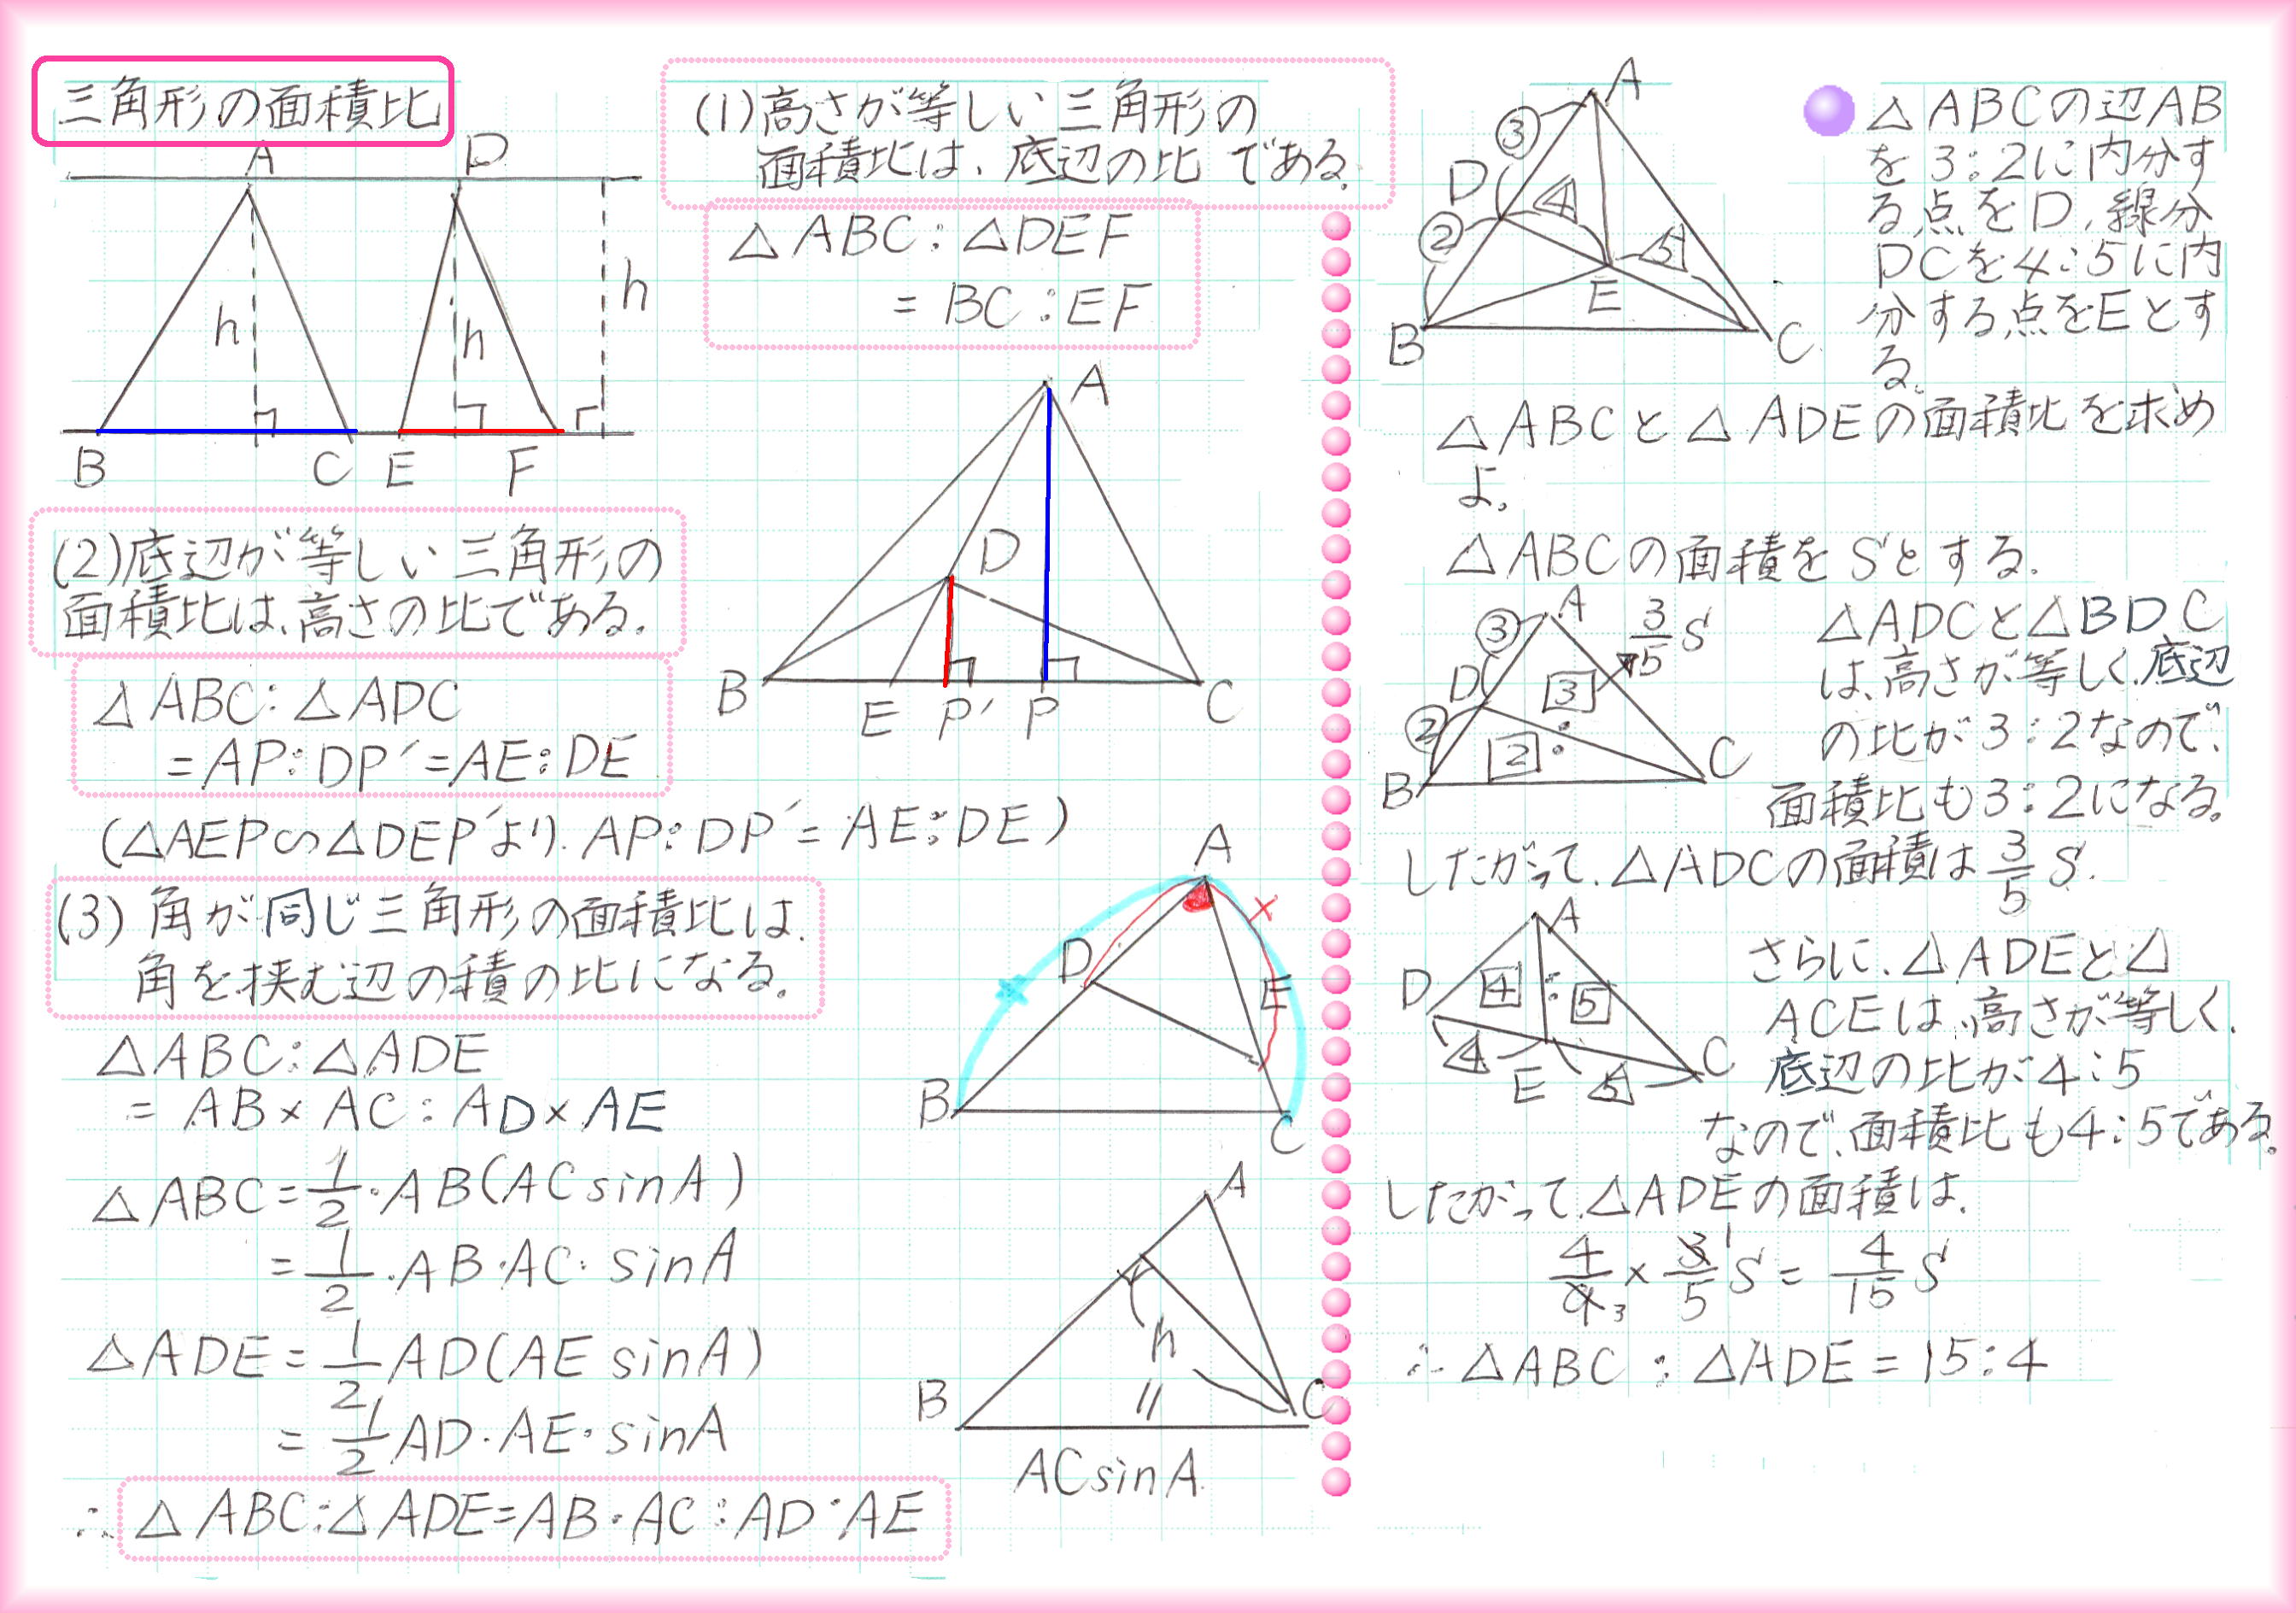 三角形の面積比
A D
h h h
B C E F
(1)高さが等しい三角形の
面積比は、底辺の比である。
△ABC:△DEF
=BC:EF
(2)底辺が等しい三角形の
面積比は、高さの比である。
△ABC:△ADC
=AP:DP′=AE:DE
(△AEP∽△DEP′より、AP:DP′=AE:DE)
A
D
B E P′ P C
(3)角が同じ三角形の面積比は、
角を挟む辺の積の比になる。
△ABC:△ADE
=AB×AC:AD×AE
△ABC=1/2・AB(ACsinA)
=1/2・AB・AC・sinA
△ADE=1/2AD(AEsinA)
=1/2AD・AE・sinA
∴△ABC:△ADE=AB・AC:AD・AE
A
×
D E
B C
A
h
B 〃 C
ACsinA
A
③
D 4
② 5
E
B C
△ABCの辺AB
を3:2に内分す
る点をD,線分
DCを4:5に内
分する点をEとす
る。
△ABCと△ADEの面積比を求め
よ。
△ABCの面積をSとする.
A
③ 3/5S
D 3
② 2
B C
△ADCと△BDC
は、高さが等しく、底辺
の比が3:2なので、
面積比も3:2になる。
したがって、△ADCの面積は3/5S.
A
D 4:5
4 E 5 C
さらに、△ADEと△
ACEは、高さが等しく、
底辺の比が4:5
なので、面積比も4:5である。
したがって、△ADEの面積は、
4/9 3×3/5 1 S=4/15S
∴△ABC:△ADE=15:4